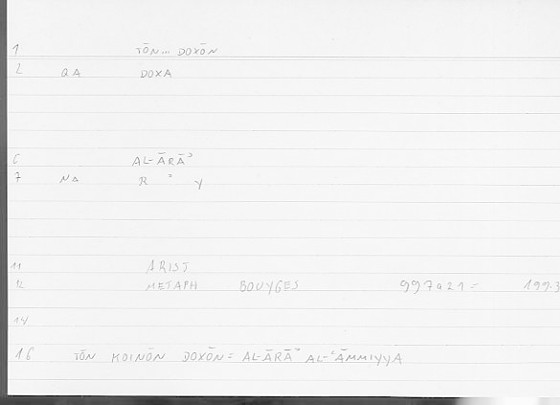 1 TŌN... DOXŌN
2 QA DOXA
6 AL-ĀRĀʾ
7 NA R ʾ Y
11 ARIST
12 METAPH BOUYGES 997a21 = 199.3
14
16 TŌN KOINŌN DOXŌN = AL-ĀRĀʾ AL-ʿĀMMIYYA